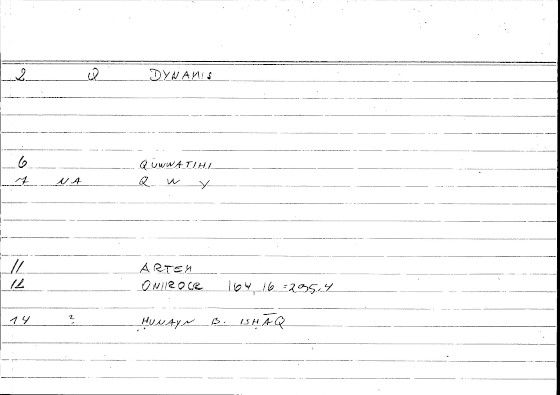 2 Q DYNAMIS
6 QUWWATIHI
7 NA Q W Y
11 ARTEM
12 ONIROCR 164,16 = 295.4
14 2 ḤUNAYN B. ISḤĀQ